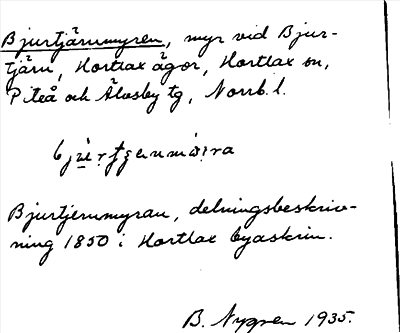 Bjurtjärnmyren, myr vid Bjur-
tjärn, Hortlax ägor, Hortlax sn,
Piteå och Älvsby tg, Norrb. l.
Bjurtjernmyran, delningsbeskriv-
ning 1850 i Hortlax byaskrin.
B. Nygren 1935.